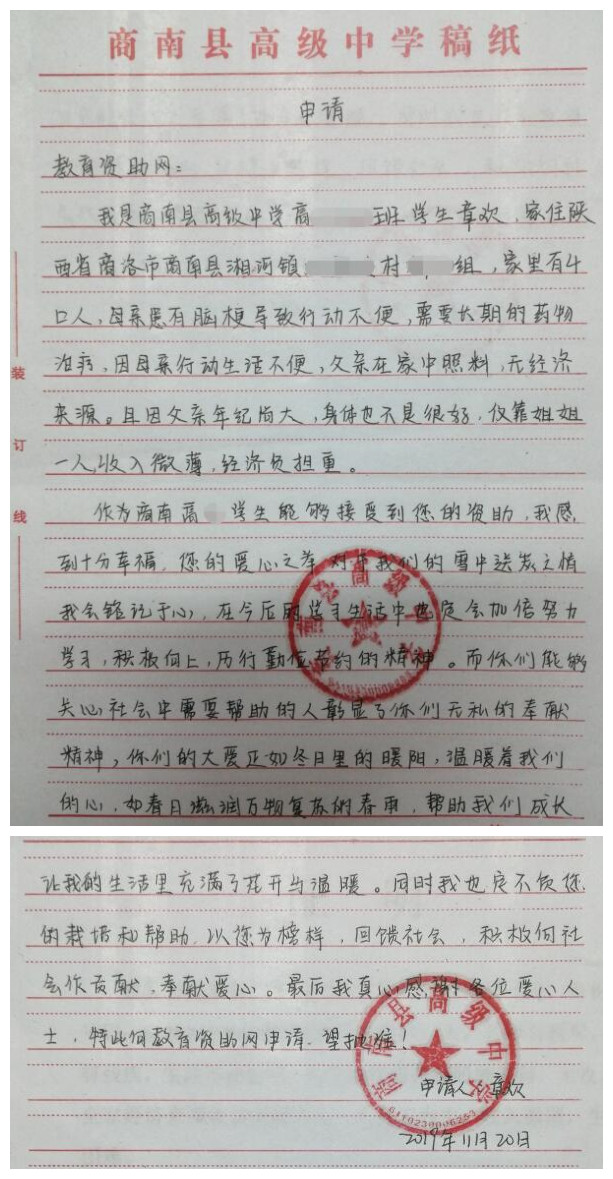 商南县高级中学稿纸
申请
教育资助网：
我是商南县高级中学高 班学生章欢，家住陕
西省商洛市商南县湘河镇 村 组，家里有4
口人，母亲患有脑梗导致行动不便，需要长期的药物
治疗，因母亲行动生活不便，父亲在家中照料，无经济
来源。且因父亲年纪尚大，身体也不是很好，仅靠姐姐
一人收入微薄，经济负担重。
作为商南高 学生能够接受到您的资助，我感
到十分幸福，您的爱心之举对于我们的雪中送炭之情
我会铭记于心，在今后的学习生活中也定会加倍努力
学习，积极向上，厉行勤俭节约的精神。而你们能够
关心社会中需要帮助的人彰显了你们无私的奉献
精神，你们的大爱正如冬日里的暖阳，温暖着我们
的心，如春日滋润万物复苏的春雨，帮助我们成长
让我的生活里充满了花开与温暖。同时我也定不负您
的栽培和帮助，以您为榜样，回馈社会，积极向社
会作贡献，奉献爱心。最后我真心感谢各位爱心人
士，特此向教育资助网申请，望批准！
申请人：章欢
2019年11月20日
装
订
线
商南县高级中学
6110230006253